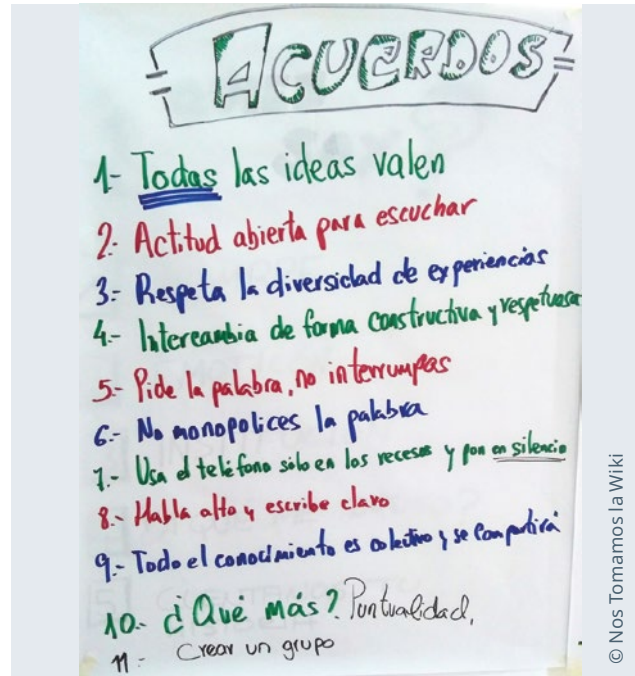 ACUERDOS
1- Todas las ideas valen
2.- Actitud abierta para escuchar
3.- Respeta la diversidad de experiencias
4.- Intercambia de forma constructiva y respetuosa
5.- Pide la palabra, no interrumpas
6.- No monopolices la palabra
7.- Usa el teléfono sólo en los recesos y pon en silencio
8.- Habla alto y escribe claro
9.- Todo el conocimiento es colectivo y se compartirá
10.- ¿Que más? Puntualidad,
11- Crear un grupo
© Nos Tomamos la Wiki